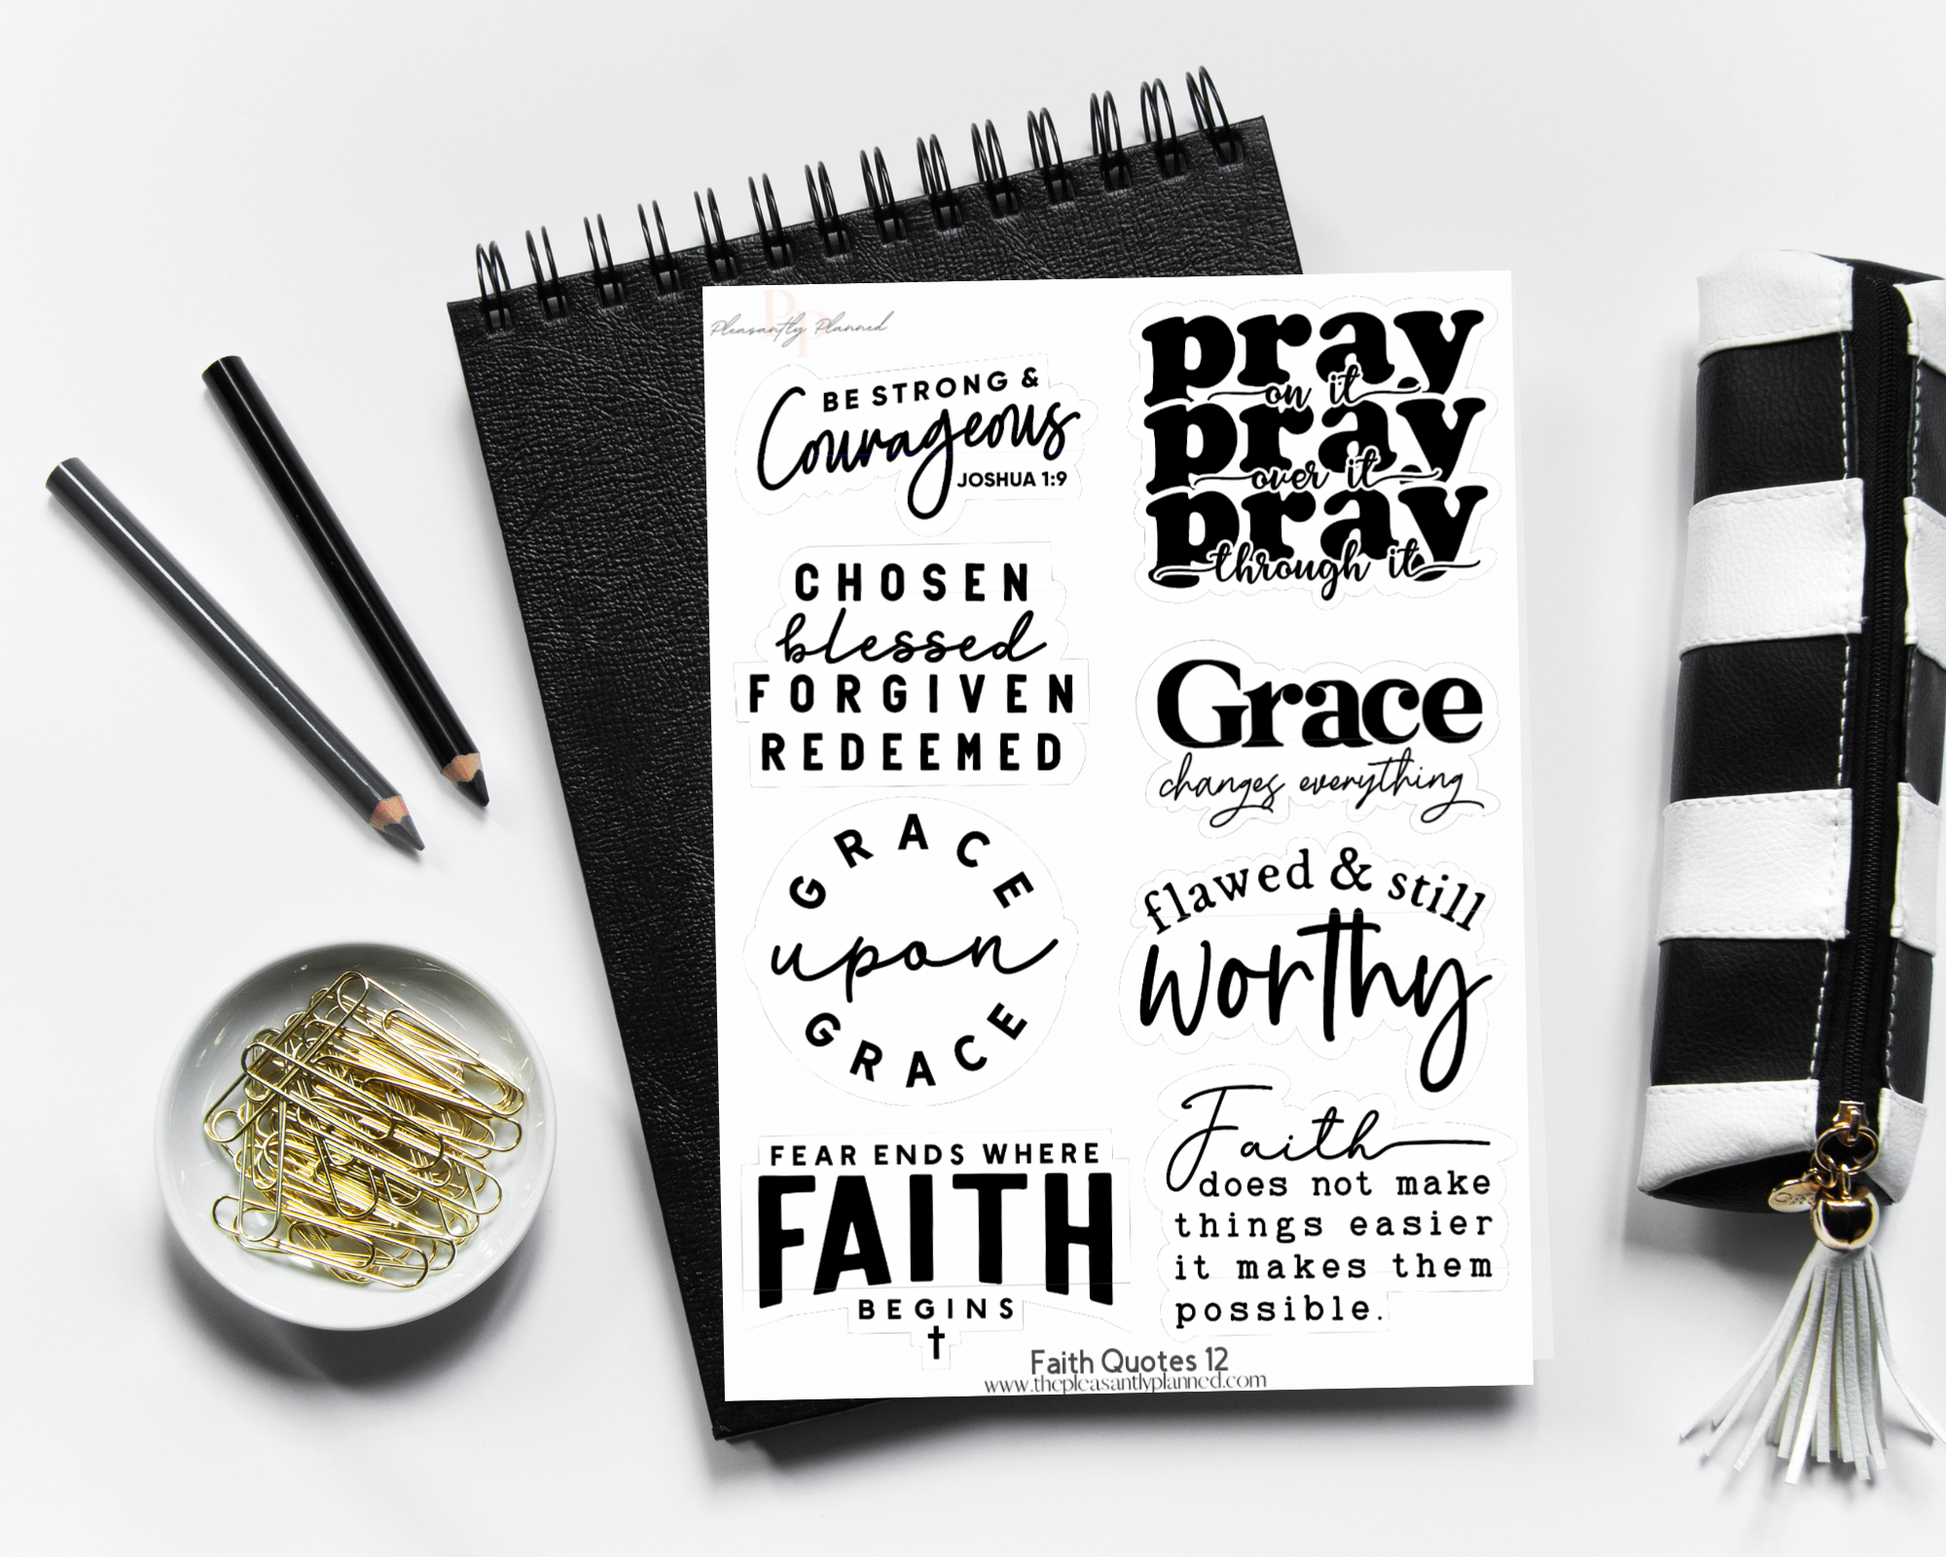 Pleasantly Planned
BE STRONG &
Courageous
JOSHUA 1:9
CHOSEN
blessed
FORGIVEN
REDEEMED
GRACE
upon
GRACE
FEAR ENDS WHERE
FAITH
BEGINS
pray
on it
pray
over it
pray
through it
Grace
changes everything
flawed & still
worthy
Faith
does not make
things easier
it makes them
possible.
Faith Quotes 12
www.thepleasantlyplanned.com